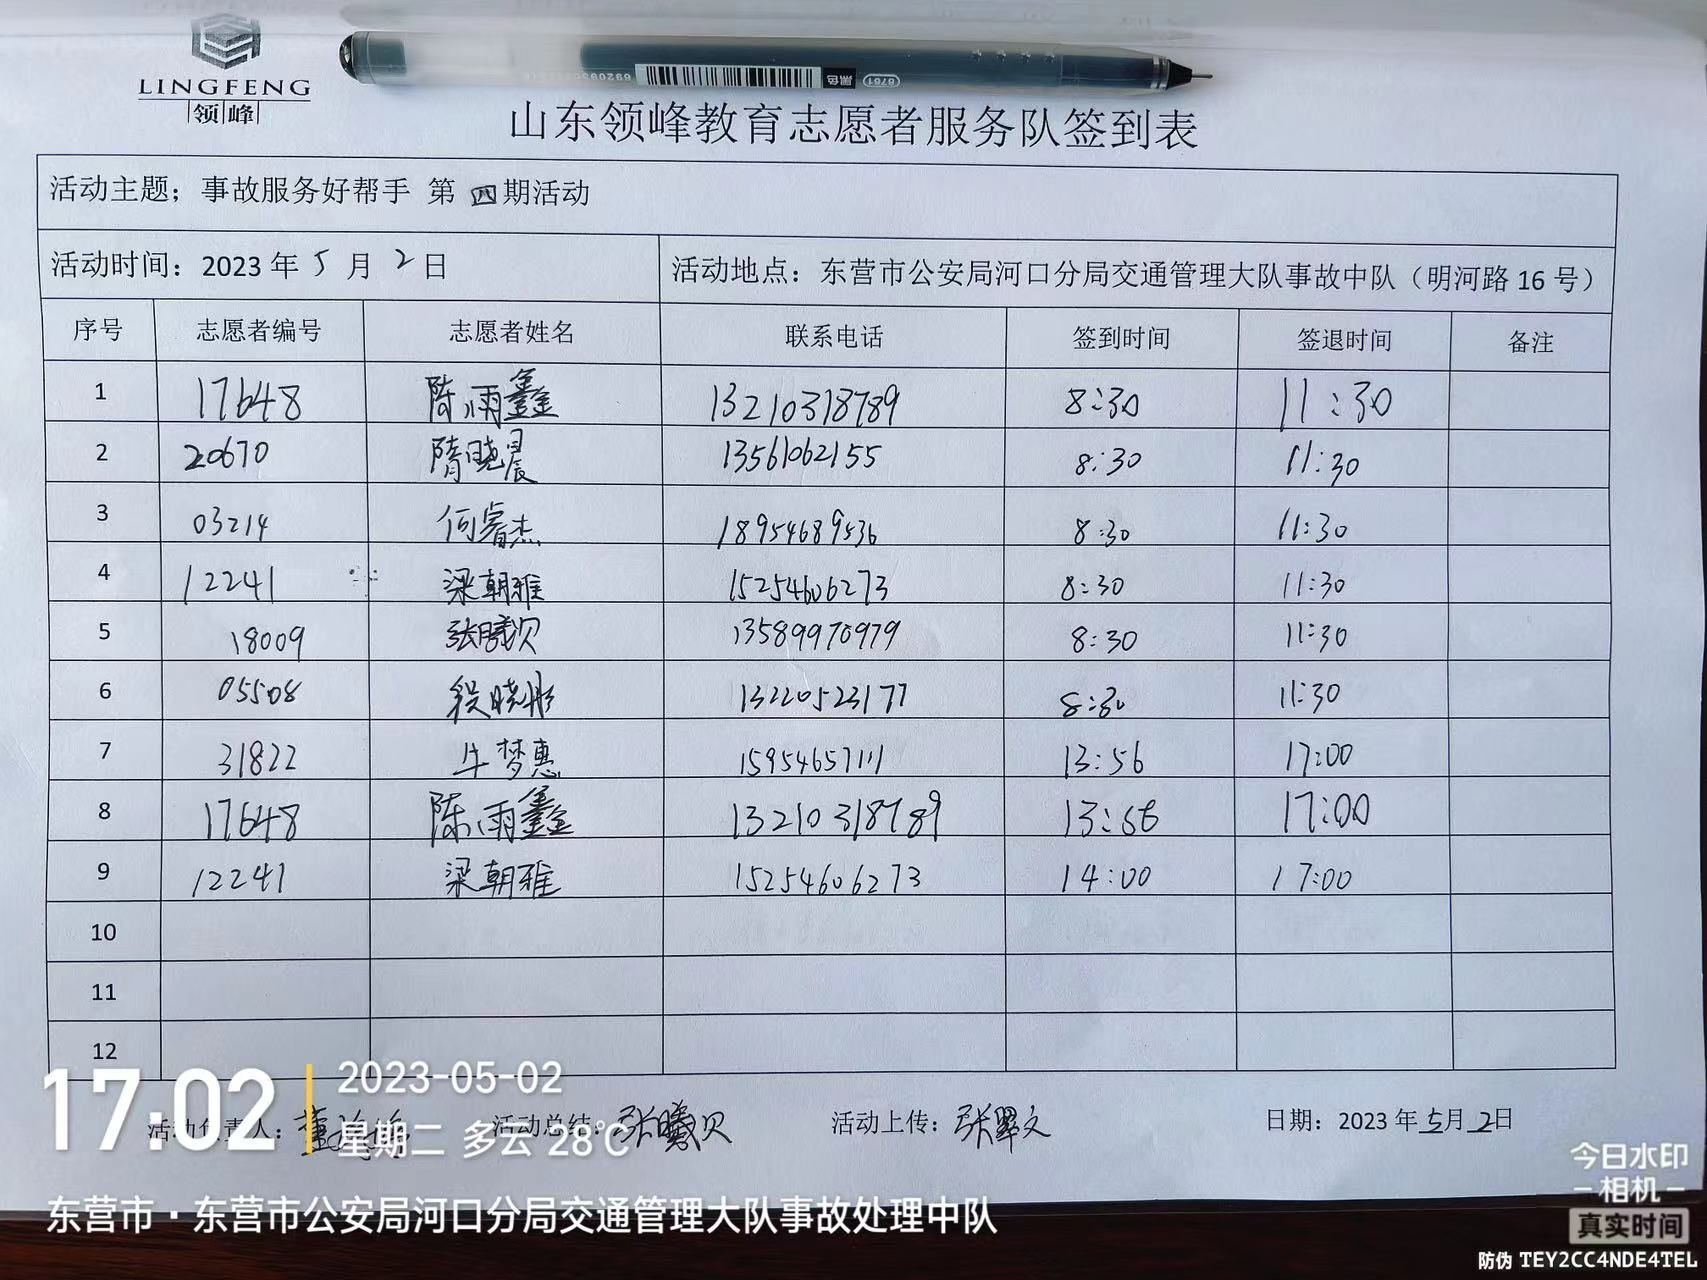 LINGFENG
领峰
黑色 8761
山东领峰教育志愿者服务队签到表
活动主题；事故服务好帮手 第 四 期活动
活动时间：2023 年 5 月 2 日 活动地点：东营市公安局河口分局交通管理大队事故中队（明河路 16 号）
序号 志愿者编号 志愿者姓名 联系电话 签到时间 签退时间 备注
1 17648 陈雨鑫 13210318789 8:30 11:30
2 20670 隋晓晨 13561062155 8:30 11:30
3 03214 何睿杰 18954689536 8:30 11:30
4 12241 梁朝雅 15254606273 8:30 11:30
5 18009 张曦贝 13589970979 8:30 11:30
6 05508 段晓彤 13220523177 8:30 11:30
7 31822 牛梦惠 15954657111 13:56 17:00
8 17648 陈雨鑫 13210318789 13:56 17:00
9 12241 梁朝雅 15254606273 14:00 17:00
10
11
12
活动负责人：董 活动总结：张曦贝 活动上传：张翠文 日期：2023 年 5 月 2 日
17:02 2023-05-02
星期二 多云 28℃
东营市·东营市公安局河口分局交通管理大队事故处理中队
今日水印
相机
真实时间
防伪 TEY2CC4NDE4TEL